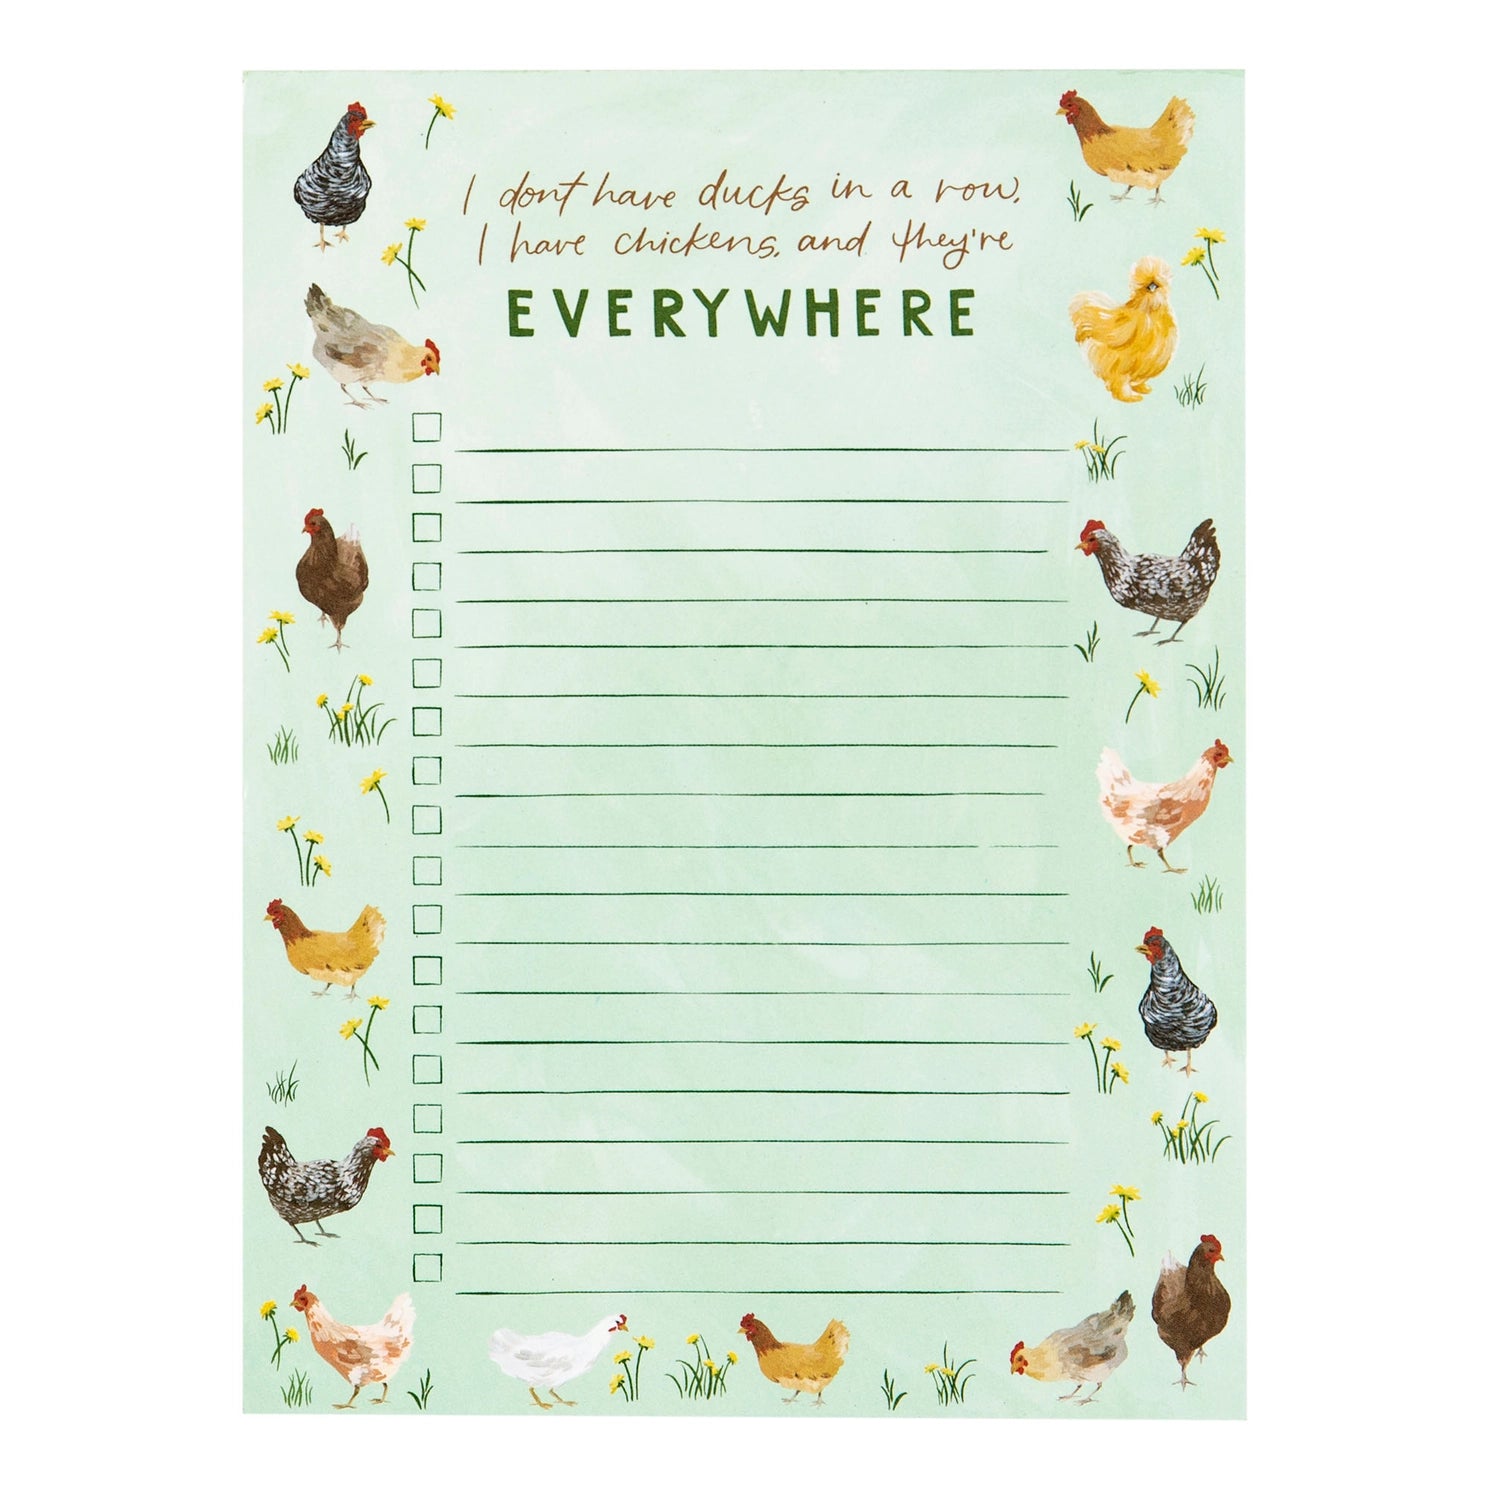 I don't have ducks in a row,
I have chickens, and they're
EVERYWHERE